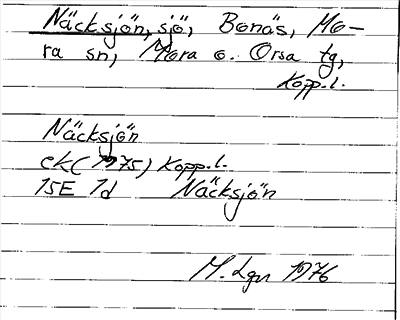 Näcksjön, sjö, Bonäs, Mo-
ra sn, Mora o. Orsa tg,
Kopp. l.
Näcksjön
ek (1975) Kopp. l.
15E 1d Näcksjön
M. Lgn 1976